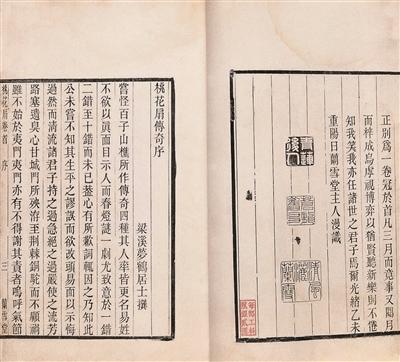 正別為一卷冠於首凡三月而竟事又閱月
而梓成烏虖視博弈以猶賢聽新樂則不倦
知我笑我亦任諸世之君子焉爾光緒乙未
重陽日蘭雪堂主人漫識
桃花扇傳奇序
梁溪夢鶴居士撰
嘗怪百子山樵所作傳奇四種其人率皆更名易姓
不欲以眞面目示人而春燈謎一劇尤致意於一錯
二錯至十錯而未已蓋心有所歉詞輒因之乃知此
公未嘗不知其生平之謬誤而欲改頭易面以示悔
過然而清流諸君子持之過急絕之過嚴使之流芳
路塞遺臭心甘城門所殃洊至荊棘銅駝而不顧禍
雖不始於夷門夷門亦有不得謝其責者嗚呼氣節
桃花扇卷首 序 三 蘭雪堂